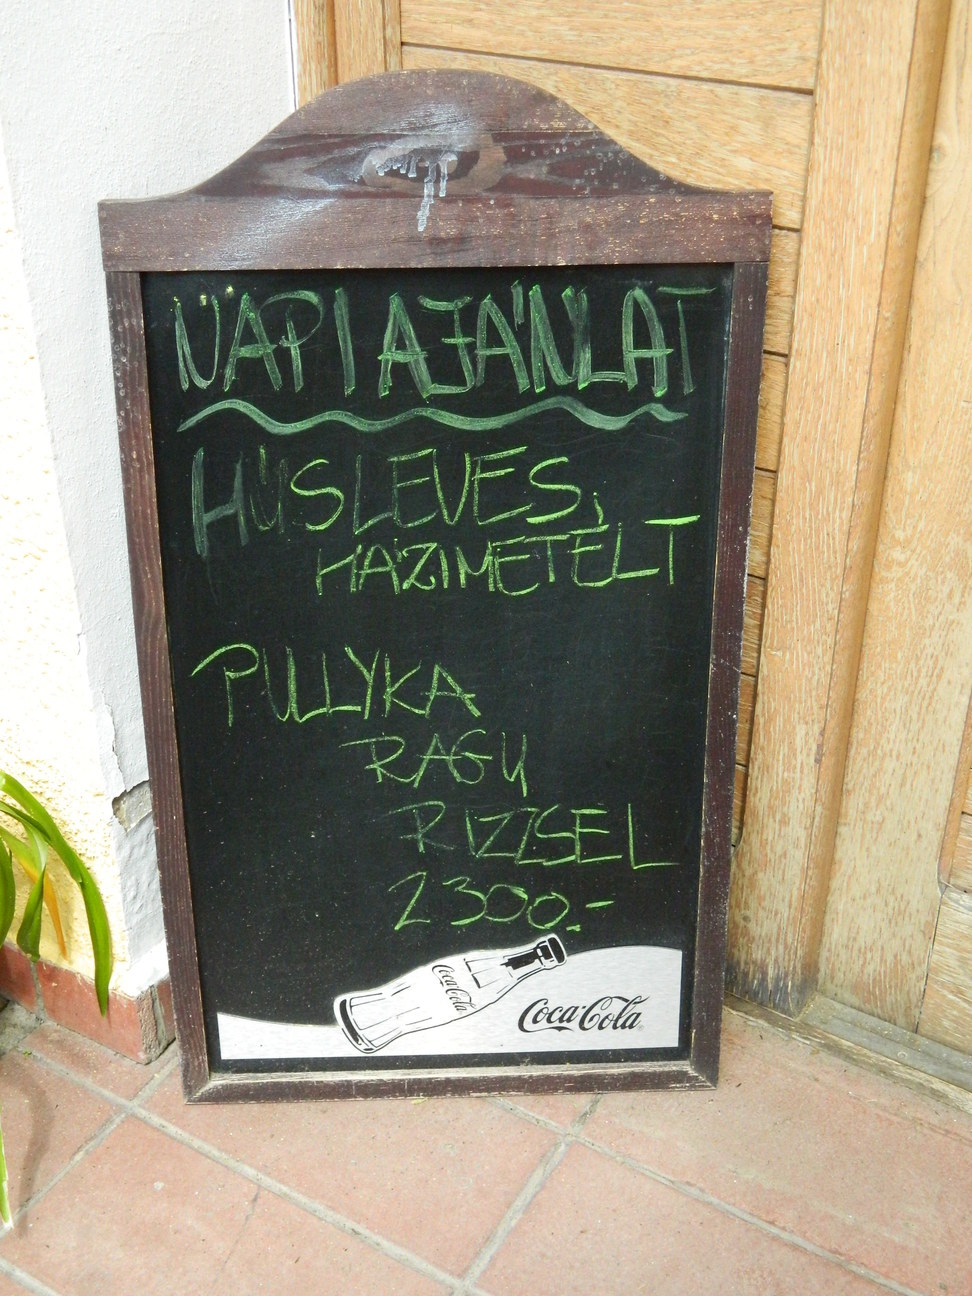 NAPI AJÁNLAT
HÚSLEVES,
HÁZIMETÉLT
PULLYKA
RAGU
RIZZSEL
2300.-
Coca-Cola
Coca-Cola